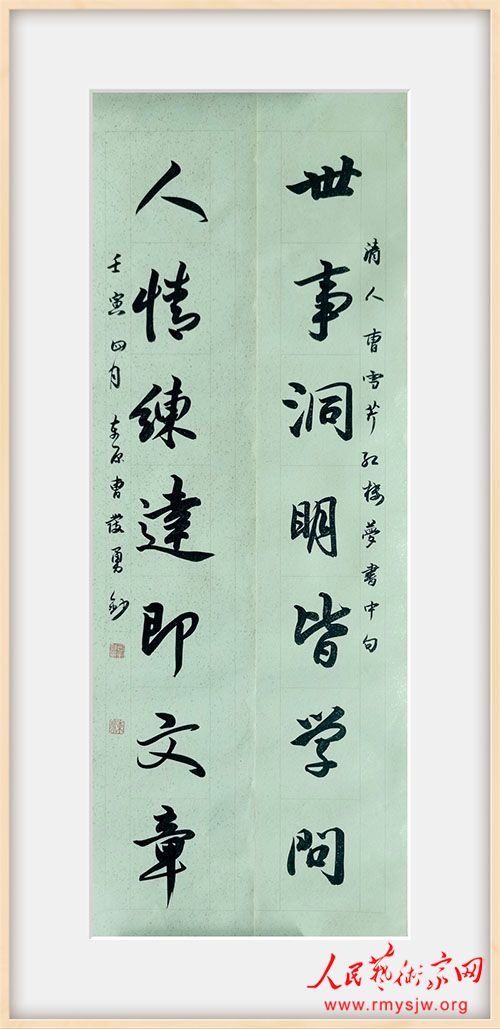 清人曹雪芹红楼夢書中句
世事洞明皆学問
人情練達即文章
壬寅四月东原曹发勇鈔
人民藝術家网
www.rmysjw.org